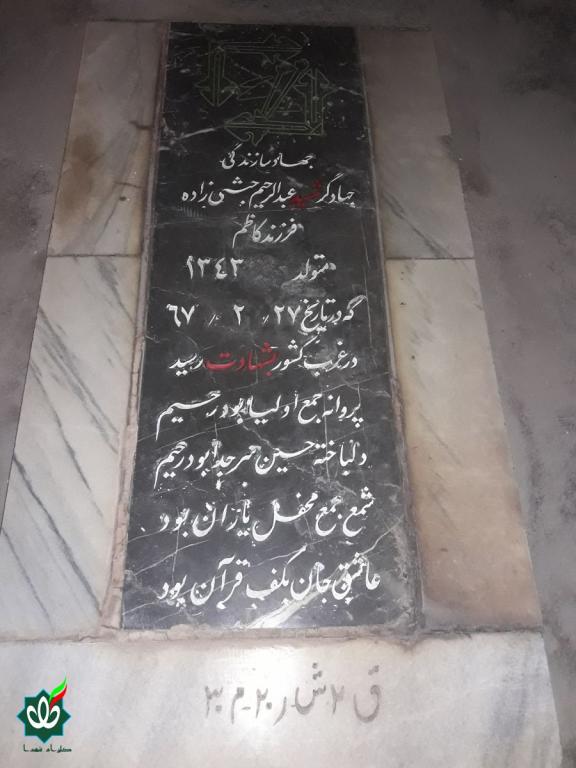 جهاد سازندگی
جهادگر شهید عبدالرحیم جشی زاده
فرزند کاظم
متولد ۱۳۴۳
که در تاریخ ۲۷ / ۲ / ۶۷
در غرب کشور بشهادت رسید
پروانه جمع اولیا بود رحیم
دلباخته حسین بود رحیم
شمع جمع محفل یاران بود
عاشق جان بکف قرآن بود
ق ۲ ش ر ۲۰ م ۳۰
گلزار شهدا